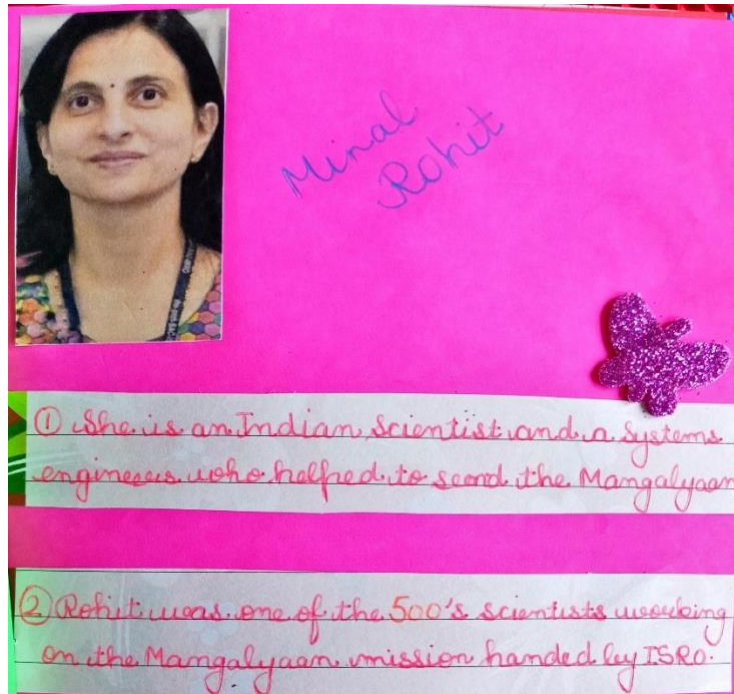 Minal
Rohit
① She is an Indian Scientist and a Systems
engineers who helped to send the Mangalyaan
② Rohit was one of the 500's scientists working
on the Mangalyaan mission handed by ISRO.